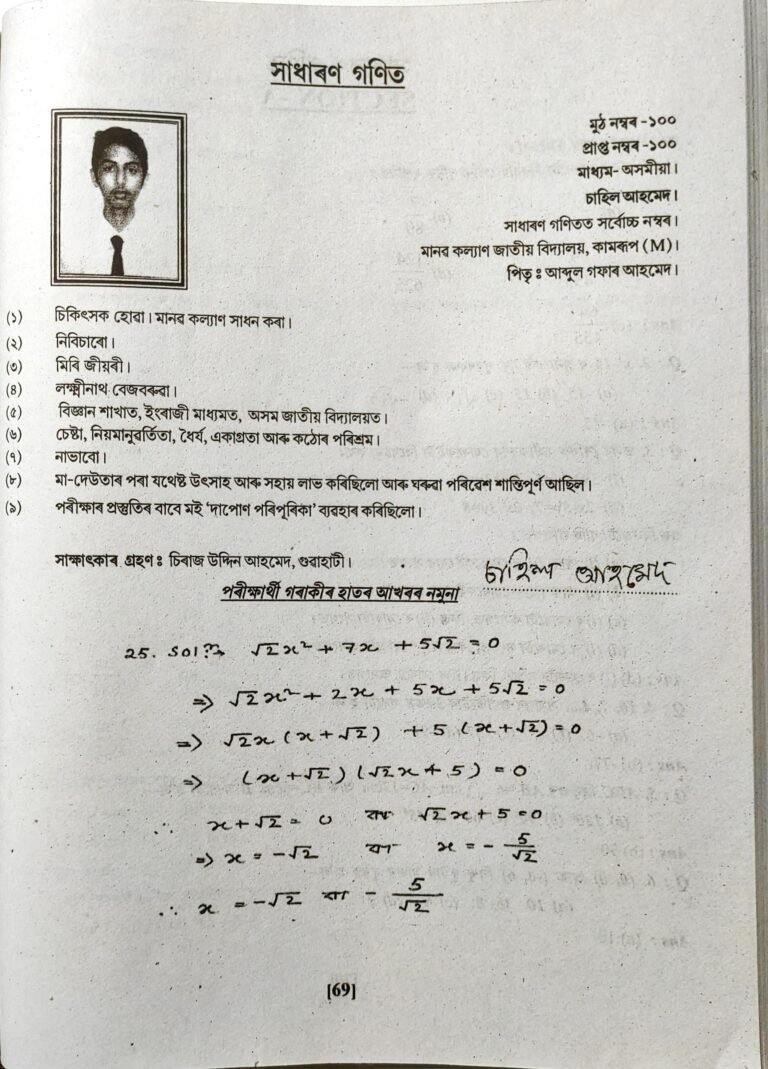 সাধাৰণ গণিত
মুঠ নম্বৰ -১০০
প্ৰাপ্ত নম্বৰ -১০০
মাধ্যম- অসমীয়া।
চাহিল আহমেদ।
সাধাৰণ গণিতত সৰ্বোচ্চ নম্বৰ।
মানৱ কল্যাণ জাতীয় বিদ্যালয়, কামৰূপ (M)।
পিতৃ ঃ আব্দুল গফাৰ আহমেদ।
(১) চিকিৎসক হোৱা। মানৱ কল্যাণ সাধন কৰা।
(২) নিবিচাৰো।
(৩) মিৰি জীয়ৰী।
(৪) লক্ষ্মীনাথ বেজবৰুৱা।
(৫) বিজ্ঞান শাখাত, ইংৰাজী মাধ্যমত, অসম জাতীয় বিদ্যালয়ত।
(৬) চেষ্টা, নিয়মানুৱৰ্তিতা, ধৈৰ্য, একাগ্ৰতা আৰু কঠোৰ পৰিশ্ৰম।
(৭) নাভাবো।
(৮) মা-দেউতাৰ পৰা যথেষ্ট উৎসাহ আৰু সহায় লাভ কৰিছিলো আৰু ঘৰুৱা পৰিৱেশ শান্তিপূৰ্ণ আছিল।
(৯) পৰীক্ষাৰ প্ৰস্তুতিৰ বাবে মই ‘দাপোণ পৰিপূৰিকা’ ব্যৱহাৰ কৰিছিলো।
সাক্ষাৎকাৰ গ্ৰহণ ঃ চিৰাজ উদ্দিন আহমেদ, গুৱাহাটী।
চাহিল আহমেদ
পৰীক্ষাৰ্থী গৰাকীৰ হাতৰ আখৰৰ নমুনা
25. Solⁿ→ √2x² + 7x + 5√2 = 0
=> √2x² + 2x + 5x + 5√2 = 0
=> √2x (x + √2) + 5 (x + √2) = 0
=> (x + √2) (√2x + 5) = 0
∴ x + √2 = 0 বা √2x + 5 = 0
=> x = -√2 বা x = - 5/√2
∴ x = -√2 বা - 5/√2
[69]